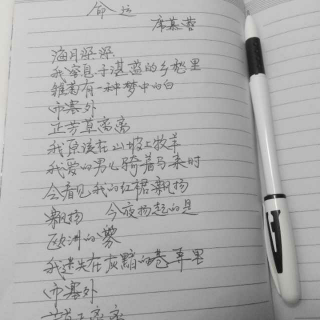 命运
席慕蓉
海月深深
我窒息于湛蓝的乡愁里
雏菊有一种梦中的白
而塞外
正芳草离离
我原该在山坡上牧羊
我爱的男儿骑着马来时
会看见我的红裙飘扬
飘扬 今夜扬起的是
欧洲的雾
我迷失在灰黯的巷弄里
而塞外
芳草正离离